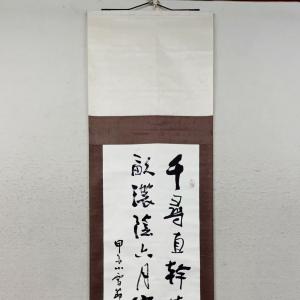 千尋直幹
畝濃陰六月
甲子小雪